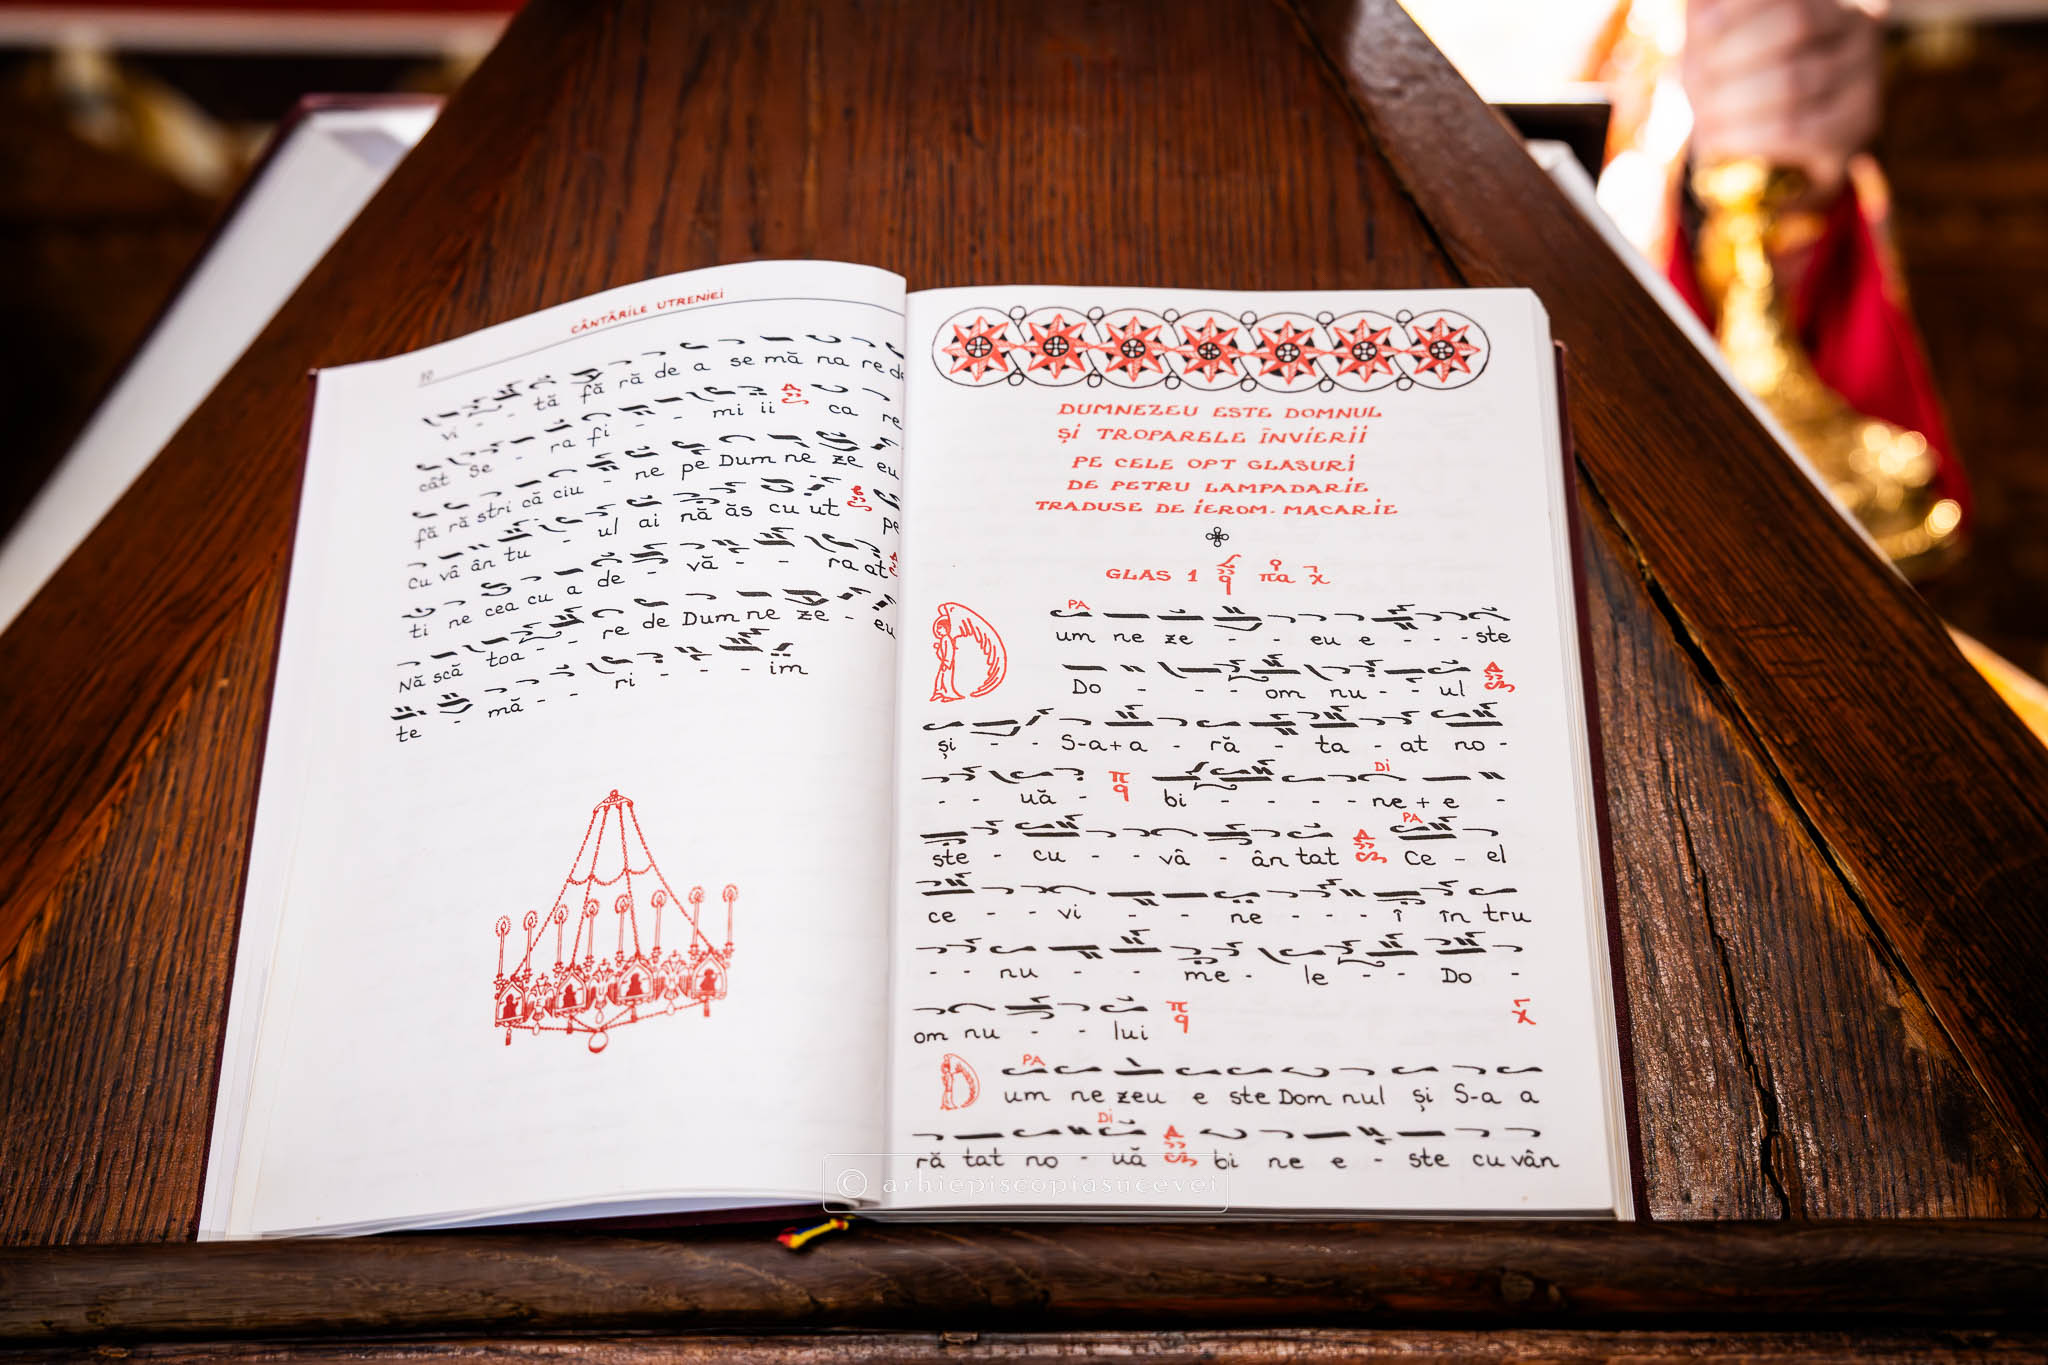 CÂNTĂRILE UTRENIEI
vi - tă fă ră de a se mă na re de
cât se - ra fi - - mi ii ca re
fă ră stri că ciu - ne pe Dum ne ze eu
cu vâ ân tu - ul ai nă ăs cu ut pe
ti ne cea cu a de - vă - - ra at
Nă scă toa - - re de Dum ne ze - eu
te - mă - - ri - - - im
DUMNEZEU ESTE DOMNUL
ȘI TROPARELE ÎNVIERII
PE CELE OPT GLASURI
DE PETRU LAMPADARIE
TRADUSE DE IEROM. MACARIE
GLAS 1 πa
PA
D um ne ze - - eu e - - - ste
Do - - - om nu - - ul
și - - S-a+a - ră - ta - at no -
DI
- - uă - bi - - - - ne + e -
PA
ște - cu - - vâ - ân tat Ce - el
ce - - vi - - ne - - - î în tru
- - nu - - me - le - - Do -
om nu - - lui
PA
D um ne zeu e ste Dom nul și S-a a
DI
ră tat no - uă bi ne e - ște cu vân
© arhiepiscopiasucevei